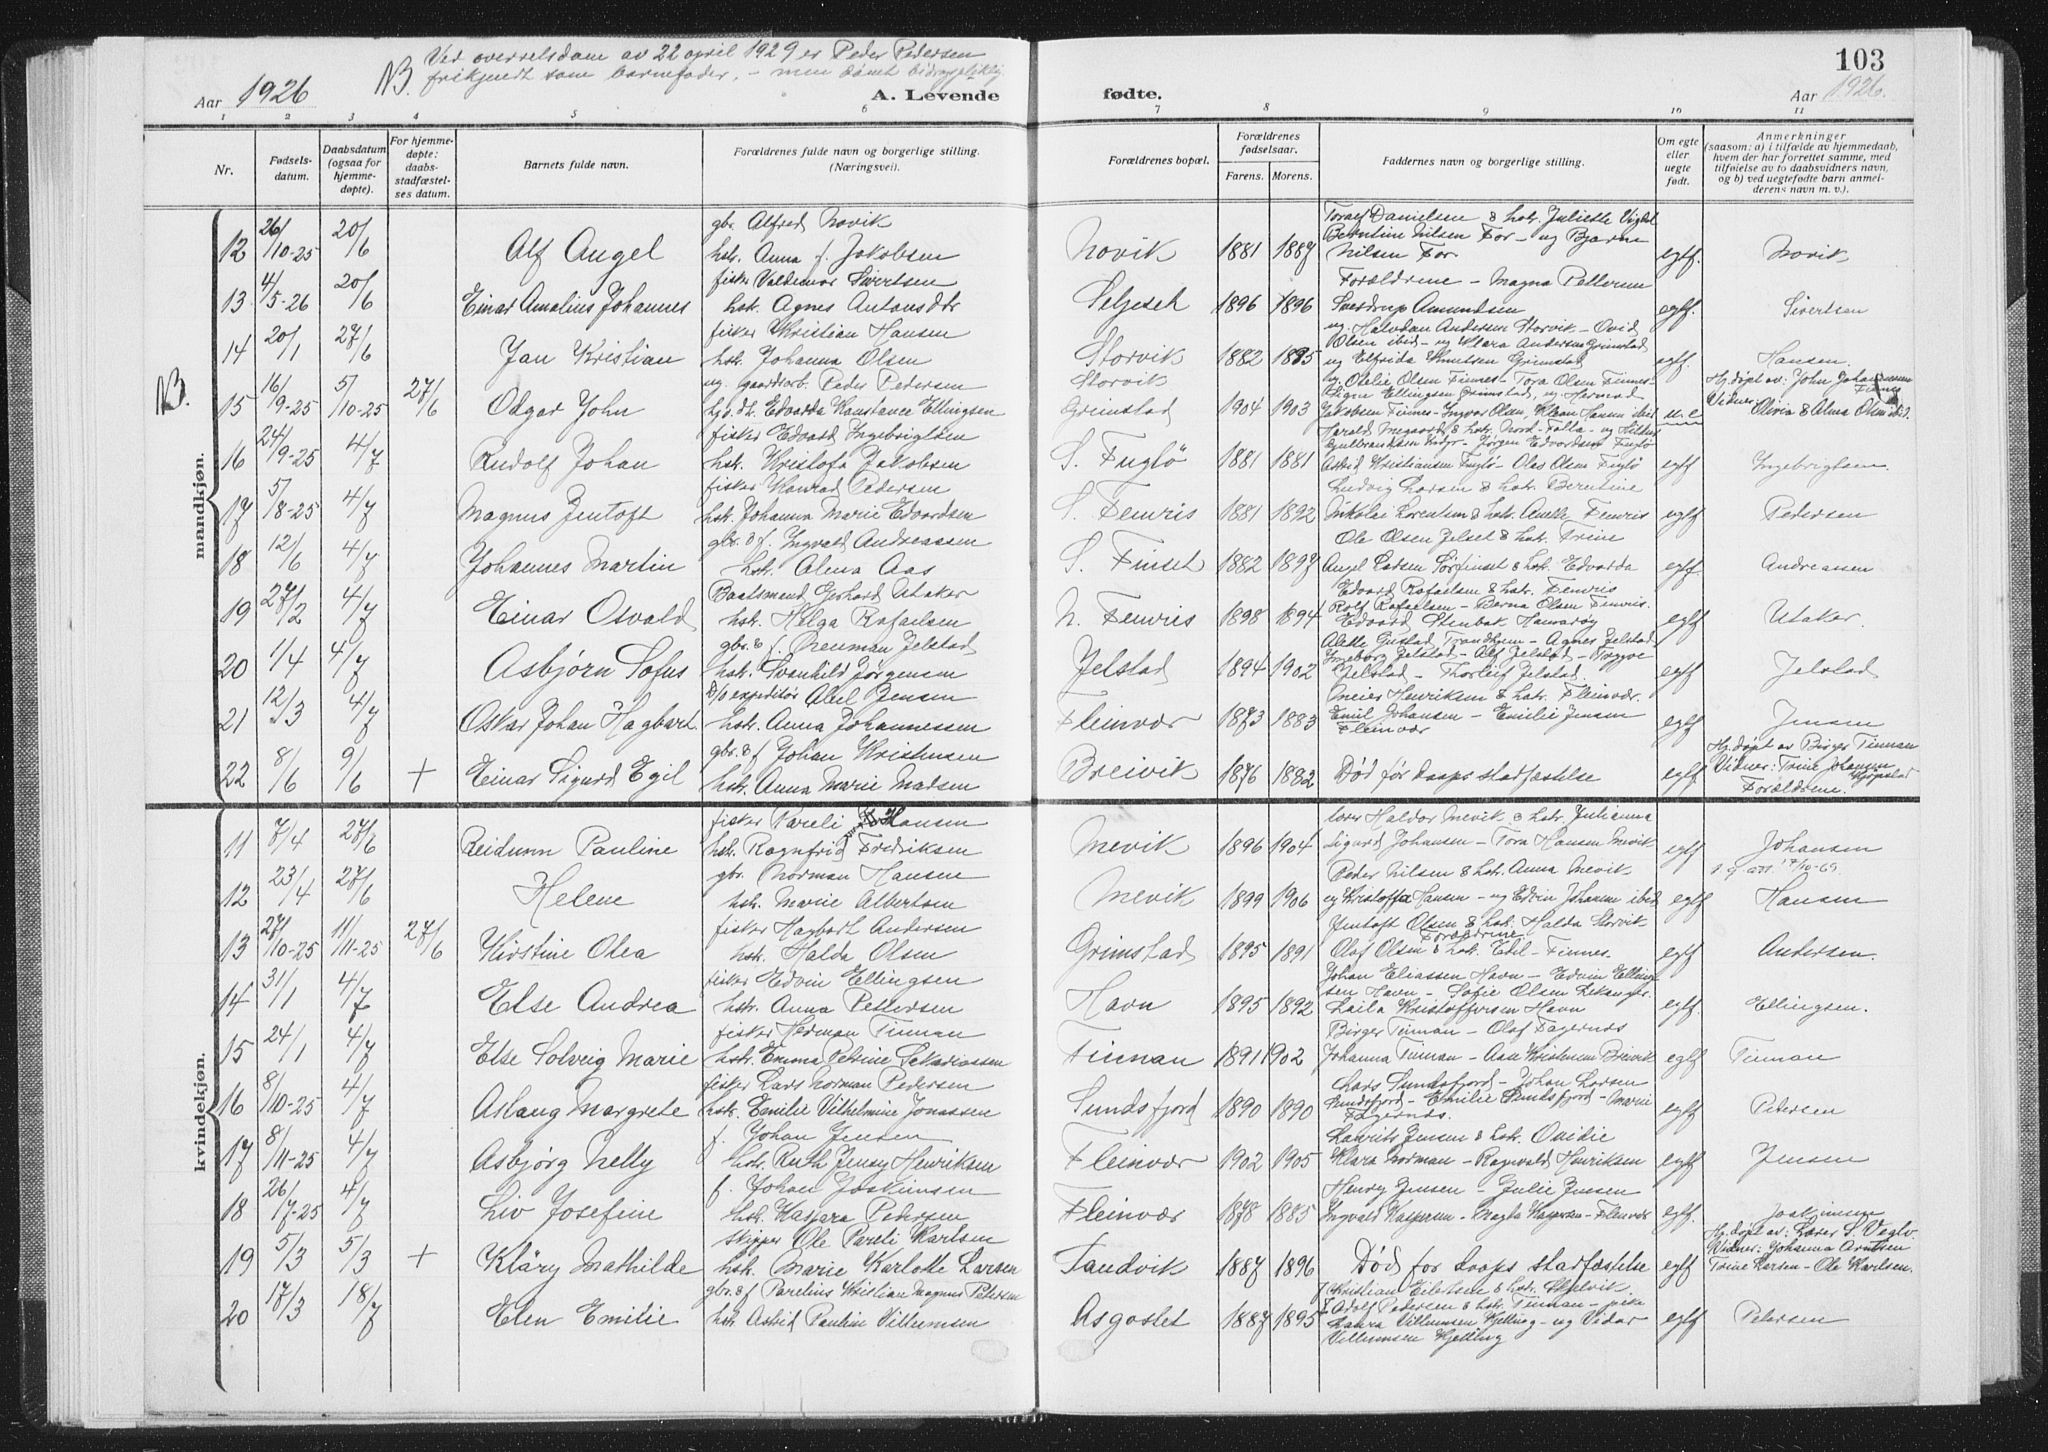 NB. Ved overretsdom av 22 april 1929 er Peder Pedersen
frikjendt som barnefader, – men dömt bidragspliktig.
103
Aar 1926
A. Levende fødte.
Aar 1926.
1 2 3 4 5 6 7 8 9 10 11
Nr.
Fødsels-datum.
Daabsdatum (ogsaa for hjemme-døpte).
For hjemme-døpte: daabs-stadfæstel-ses datum.
Barnets fulde navn.
Forældrenes fulde navn og borgerlige stilling. (Næringsvei).
Forældrenes bopæl.
Forældrenes fødselsaar.
Farens. Morens.
Faddernes navn og borgerlige stilling.
Om egte eller uegte født.
Anmerkninger (saasom: a) i tilfælde av hjemmedaab, hvem der har forrettet samme, med tilføielse av to daabsvidners navn, og b) ved uegtefødte barn anmel-derens navn m. v.).
mandkjøn.
12 26/10-25 20/6 Alf Angel gbr. Alfred Novik
hstr. Anna f. Jakobsen Novik 1881 1887 Toralf Danielsen & hstr. Juliette Vigdel
Berntine Nilsen For – og Bjarne
Nilsen For egtf. Novik
13 4/5-26 20/6 Einar Amalius Johannes fisker Valdemar Sivertsen
hstr. Agnes Antonsdtr Seljeseth 1896 1896 Forældrene – Magna Pettersen
Sverdrup Amundsen egtf. Sivertsen
14 20/1 27/6 Jan Kristian fisker Kristian Hansen
hstr. Johanna Olsen Storvik 1882 1885 ug. Halvdan Andersen Storvik – Ovid
Olsen ibid – ug Klara Andersen Grimstad
ug Elfrida Knutsen Grimstad egtf. Hansen
NB. 15 16/9-25 5/10-25 27/6 Odgar John ug. gaardsarb. Peder Pedersen
hj.v. dtr. Edvarda Konstance Ellingsen Storvik
Grimstad 1904 1903 ug. Otelie Olsen Finnes – Tora Olsen Finnes –
Signe Ellingsen Grimstad, ug Herman
Jakobsen Finnes – Ingvar Olsen, Klean Hansen ibid u.e. Hj.døpt av: John Johannessen
Finnes
Vidner: Olivia & Alma Olsen ibid.
16 24/9-25 4/7 Rudolf Johan fisker Edvard Ingebrigtsen
hstr. Kristofa Jakobsen S. Fuglö 1881 1881 Harald Megaard & hstr. Nord-Folla – ug Hilda
Jørgen Edvardsen Fuglö
Astrid Kristiansen Fuglö – Olas Olsen Fuglö egtf Ingebrigtsen.
17 5/8-25 4/7 Magnus Jentoft fisker Konrad Pedersen
hstr. Johanna Marie Edvardsen S. Fenris 1881 1892 Ludvig Larsen & hstr. Berntine
Nikolai Lorentsen & hstr. Anette Fenris egtf Pedersen
18 12/6 4/7 Johannes Martin gbr. & f. Ingvald Andreassen
hstr. Alma Aas S. Finset 1882 1897 Ole Olsen Jelset & hstr. Trine
Angel Larsen Sörfinset & hstr. Edvarda egtf. Andreassen
19 27/2 4/7 Einar Osvald Baatsmand Gerhard Utaker
hstr. Helga Rafaelsen N. Fenris 1898 1894 Edvard Rafaelsen & hstr. Fenris
Rolf Rafaelsen – Berna Olsen Fenris.
Edvard Stenbak Hamarøy egtf Utaker.
20 1/4 4/7 Asbjørn Sofus gbr. & f. Ørenman Jelstad
hstr. Svanhild Jørgensen Jelstad 1894 1902 Alette Gustad Trondhjem – Agnes Jelstad
Ingeborg Jelstad – Alf Jelstad – Trygve
Jelstad – Thorleif Jelstad. egtf Jelstad
21 12/3 4/7 Oskar Johan Hagbart D/S expeditör Abel Jensen
hstr. Anna Johannessen Fleinvær 1873 1883 Meier Henriksen & hstr. Fleinvær.
Emil Johansen – Emilie Jensen
Fleinvær egtf Jensen
22 8/6 9/6 + Einar Sigurd Egil gbr. & f. Johan Kristensen
hstr. Anna Marie Madsen Breivik 1876 1882 Död för daaps stadfæstelse egtf Hj. døpt av Birger Tinnan
Vidner: Trine Johansen
Forældrene.
kvindekjøn.
11 7/4 27/6 Reidunn Pauline fisker Pareli Hansen
hstr. Ragnfrid Fredriksen Mevik 1896 1904 lærer Haldor Mevik & hstr. Julianna
Sigurd Johansen – Tora Hansen Mevik egtf Johansen
12 23/4 27/6 Helene gbr. Norman Hansen
hstr. Marie Albertsen Mevik 1899 1906 Peder Nilsen & hstr. Anna Mevik
ug Kristoffa Hansen – ug Edvin Johansen ibid egtf Hansen
13 27/10-25 11/11-25 27/6 Kirstine Olea fisker Hagbart Andersen
hstr. Halda Olsen Grimstad 1895 1891 Jentoft Olsen & hstr. Halda Storvik
Forældrene
Olaf Olsen & hstr. Edel – Finnes. egtf Andersen.
14 31/1 4/7 Else Andrea fisker Edvin Ellingsen
hstr. Anna Pettersen Havn 1895 1892 Johan Eliassen Havn – Edvin Elling-
sen Havn – Sofie Olsen Lekanger.
Laila Kristoffersen Havn egtf. Ellingsen.
15 24/1 4/7 Else Solveig Marie fisker Herman Tinnan
hstr. Emma Petrine Sakariassen Tinnan 1891 1902 Birger Tinnan – Olaf Fagernes
Johanna Tinnan – Aase Kristensen Breivik egtf Tinnan
16 8/10-25 4/7 Aslaug Margrete fisker Lars Norman Pedersen
hstr. Emilie Vilhelmine Jonassen Sundsfjord 1890 1890 Lars Sundsfjord – Johan Larsen
Sundsfjord – Emilie Sundsfjord – Marie
Fagernes. egtf Petersen
17 8/11-25 4/7 Asbjørg Nelly f. Johan Jensen
hstr. Ruth Jensy Henriksen Fleinvær 1902 1905 Laurits Jensen & hstr. Ovidie
Klara Norman – Ragnvald Henriksen egtf Jensen
18 26/7-25 4/7 Liv Josefine f. Johan Joakimsen
hstr. Kaspara Pedersen Fleinvær 1878 1885 Henry Jensen – Julie Jensen
Ingvald Kaspersen – Magda Kaspersen – Fleinvær egtf. Joakimsen
19 5/3 5/3 + Kläry Mathilde skipper Ole Pareli Karlsen
hstr. Marie Karlotte Larsen Sandvik 1887 1896 Död for daaps stadfæstelse egtf Hj. døpt av: Lærer S. Veglo.
Vidner: Johanna Arntsen
Trine Larsen – Ole Karlsen.
20 17/3 18/7 Elen Emilie gbr. & f. Parelius Kristian Magnus Petersen
hstr. Astrid Pauline Villumsen Asgostet 1887 1895 Kristian Eilertsen & hstr. Skjelvik
Adolf Pedersen & hstr. Tinnan – pike
Laura Villumsen Kjelling – ug Vidar
Villumsen Kjelling egtf Petersen